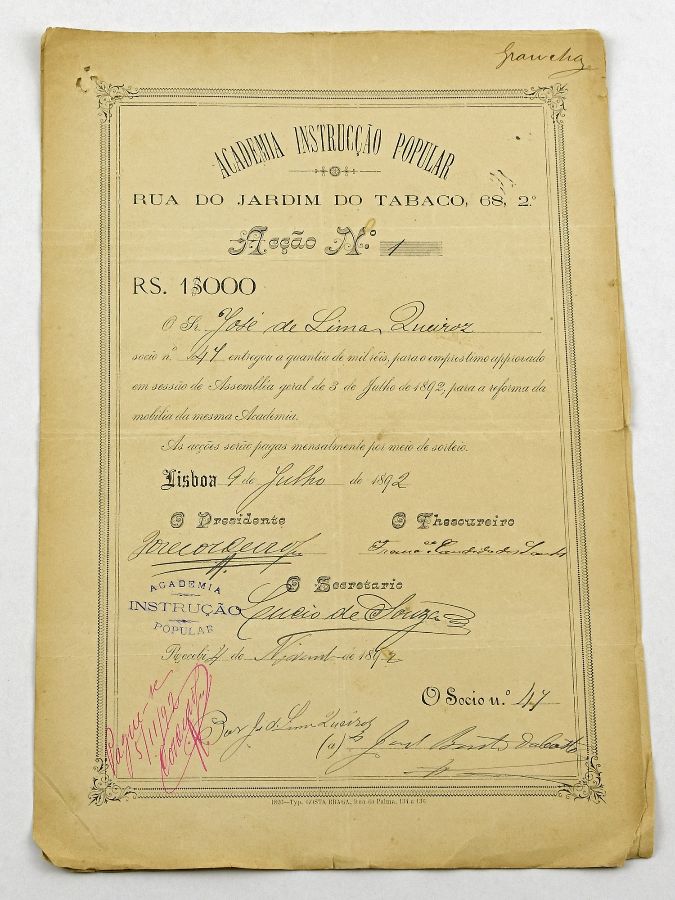 ACADEMIA INSTRUCÇÃO POPULAR
RUA DO JARDIM DO TABACO, 68, 2.º
Acção N.º 1
RS. 1$000
O Sr. José de Lima Queiroz
socio n.º 47 entregou a quantia de mil réis, para o emprestimo approvado
em sessão de Assembléa geral de 3 de Julho de 1892, para a reforma da
mobilia da mesma Academia.
As acções serão pagas mensalmente por meio de sorteio.
Lisboa 9 de Julho de 1892
O Presidente O Thesoureiro
O Secretario
Lucio de Souza
ACADEMIA
INSTRUÇÃO
POPULAR
Recebi 4 de de 1892
O Socio n.º 47
Por J. de Lima Queiroz
(a)
5/11/92
Typ. COSTA BRAGA, Rua da Palma,